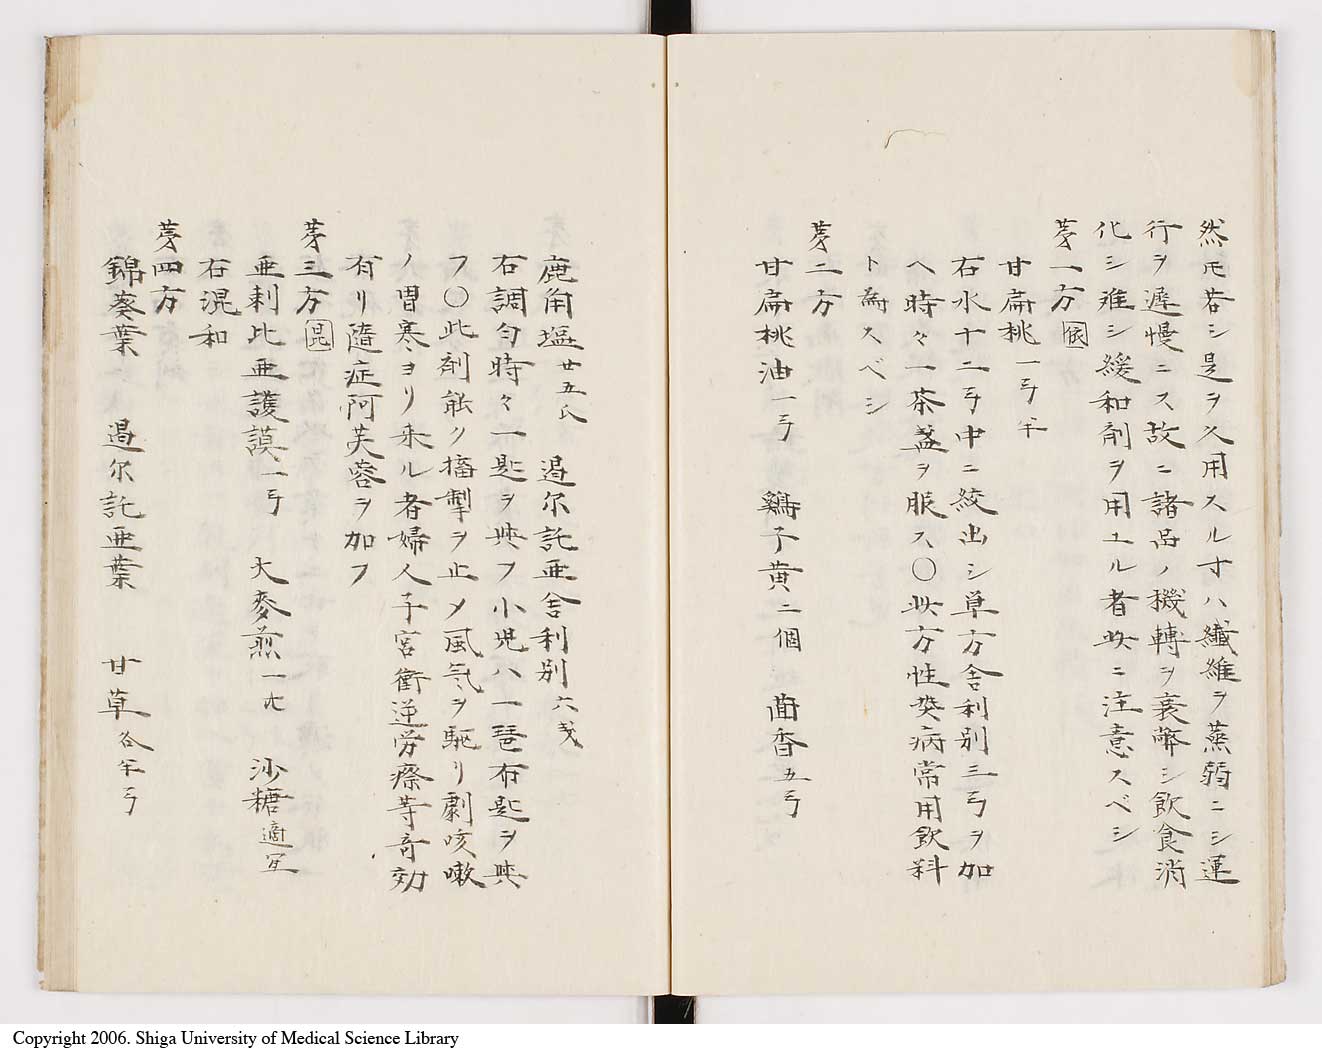 然𪜈若シ是ヲ久用スル寸ハ纖維ヲ蒸弱ニシ運
行ヲ遲慢ニス故ニ諸品ノ機轉ヲ衰弊シ飲食消
化シ難シ緩和剤ヲ用ユル者此ニ注意スベシ
㐧一方 依
甘扁桃 一弓半
右水十二弓中ニ絞出シ単方舎利別三弓ヲ加
ヘ時々一茶盞ヲ服ス〇此方性㷔病常用飲料
ト為スベシ
㐧二方
甘扁桃油 一弓 鷄子黄 二個 茴香 五弓
鹿角塩 廿五氏 遏尓託亜舎利別 六戔
右調匀時々一匙ヲ與フ小児ハ一琶布匙ヲ與
フ〇此剤能ク搐掣ヲ止メ風気ヲ駆リ劇咳嗽
ノ胃寒ヨリ来ル者婦人子宮衝逆労瘵等奇効
有リ隨症阿芙蓉ヲ加フ
㐧三方 昆
亜剌比亜護謨 二弓 大麥煎 一 沙糖 適宜
右混和
㐧四方
錦葵葉 遏尓託亜葉 甘草 各半弓
Copyright 2006. Shiga University of Medical Science Library